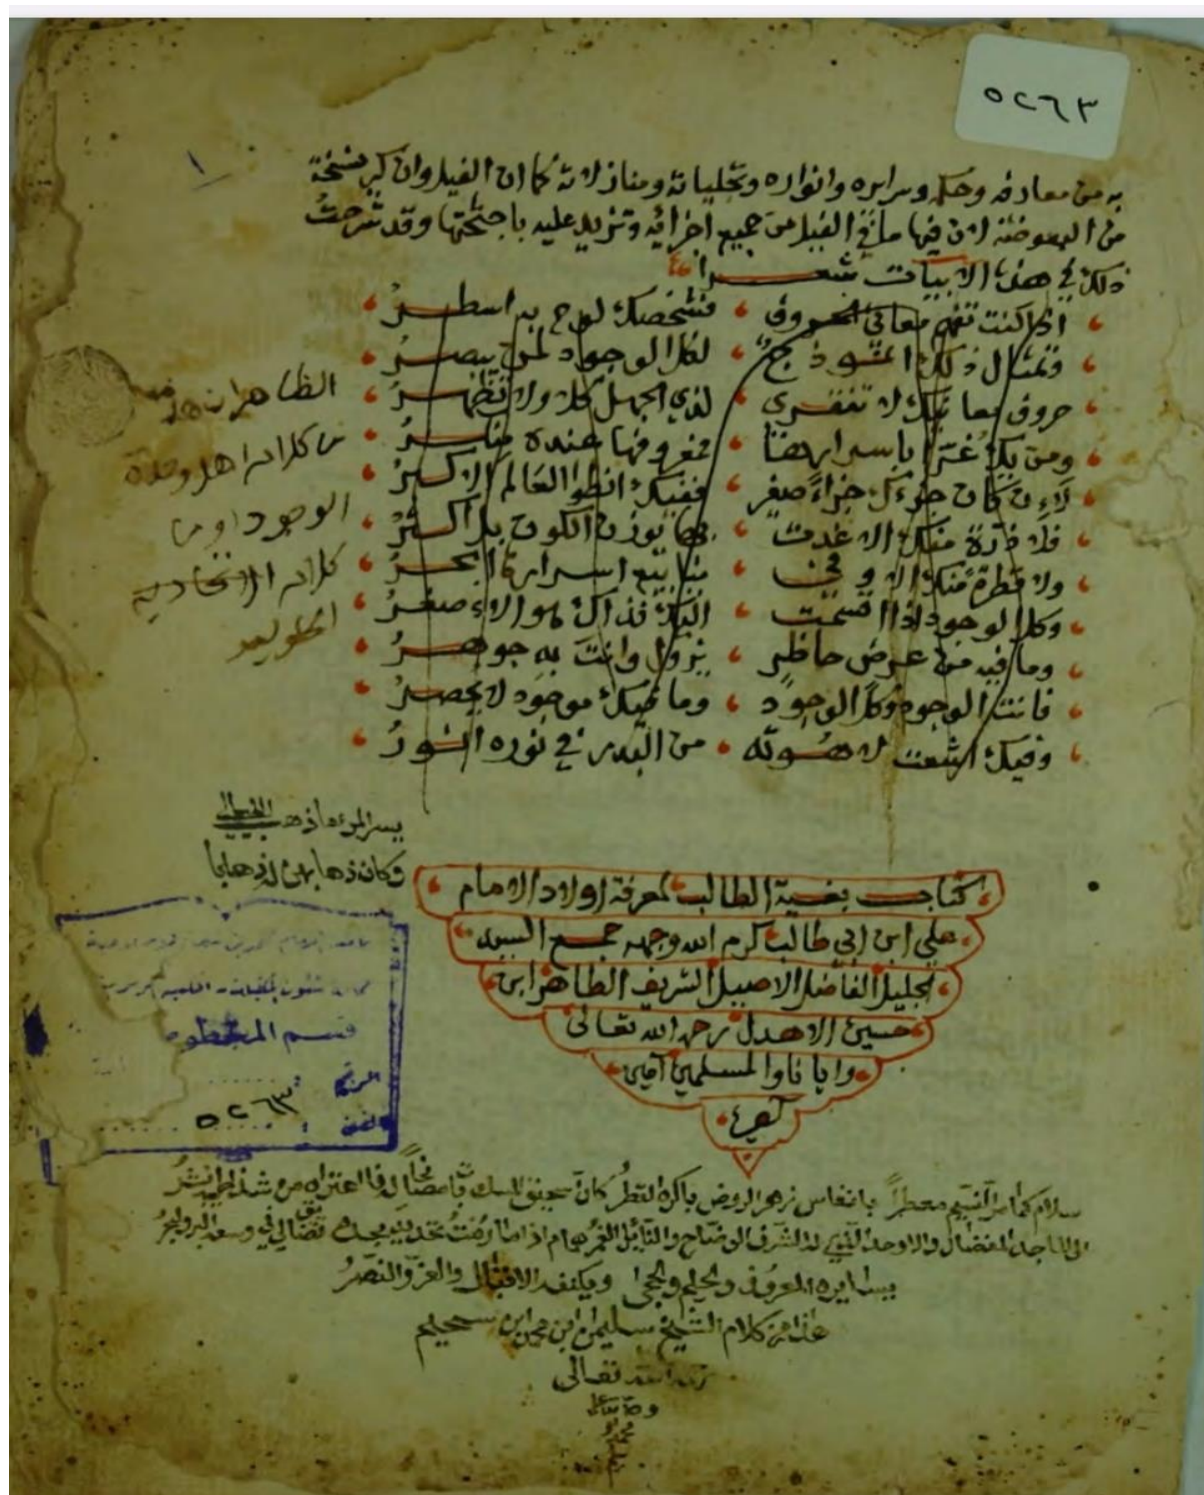 ٥٢٦٣
١
به من معارفه وحكمه وسرايره وانواره وتجلياته ومنازلاته كما ان الفيل وان كبر نسخة
من البعوضة لان فيها ما في الفيل من جميع اجزائه وتزيد عليه باجنحتها وقد شرحت
ذلك في هذه الابيات شعرا
اذا كنت تفهم معاني الحروف فشخصك لوح به اسطر
فمثال ذلك انموذج لكل الوجود لمن يبصر
حروف معانيك لا تنقرى لذي الجهل كلا ولا تظهر
ومن يك غرا باسرارها فمعروفها عنده منكر
لاءن كان جزءك جزاء صغير ففيك انطوا العالم الاكبر
فلا ذرة منك الا غدت بها يوزن الكون بل اكثر
ولا قطرة منك الا وفي ينابيع اسرارها ابحر
وكل الوجود اذا قسمت اليك فذاك هو الاءصغر
وما فيه من عرض حاظر يزول وانت به جوهر
فانت الوجود وكل الوجود وما فيك موجود لا يحصر
وفيك اشعت لاهوته من البدر في نوره انور
الظاهر ان هذه
من كلام اهل وحدة
الوجود او من
كلام الاتحادية
يسر المرء ما ذهب الليالي
وكان ذهابهن له ذهابا
كتاب بغية الطالب لمعرفة اولاد الامام
علي ابن ابي طالب كرم الله وجهه جمع السيد
الجليل الفاضل الاصيل الشريف الطاهر ابن
حسين الاهدل رحمه الله تعالى
وايانا والمسلمين امين
قسم المخطوطات
الرقم
٥٢٦٣
الفن
سلام كما مر النسيم معطرا بانفاس زهر الروض باكره القطر كان سحيق المسك
الى الماجد المفضال والاوحد الذي له الشرف الوضاح والنايل الغمر همام اذا ما رمت
يسايره المعروف والحلم والحجى ويكنفه الاقبال والعز والنصر
هذا من كلام الشيخ سليمان ابن محمد ابن سحيم
رحمه الله تعالى